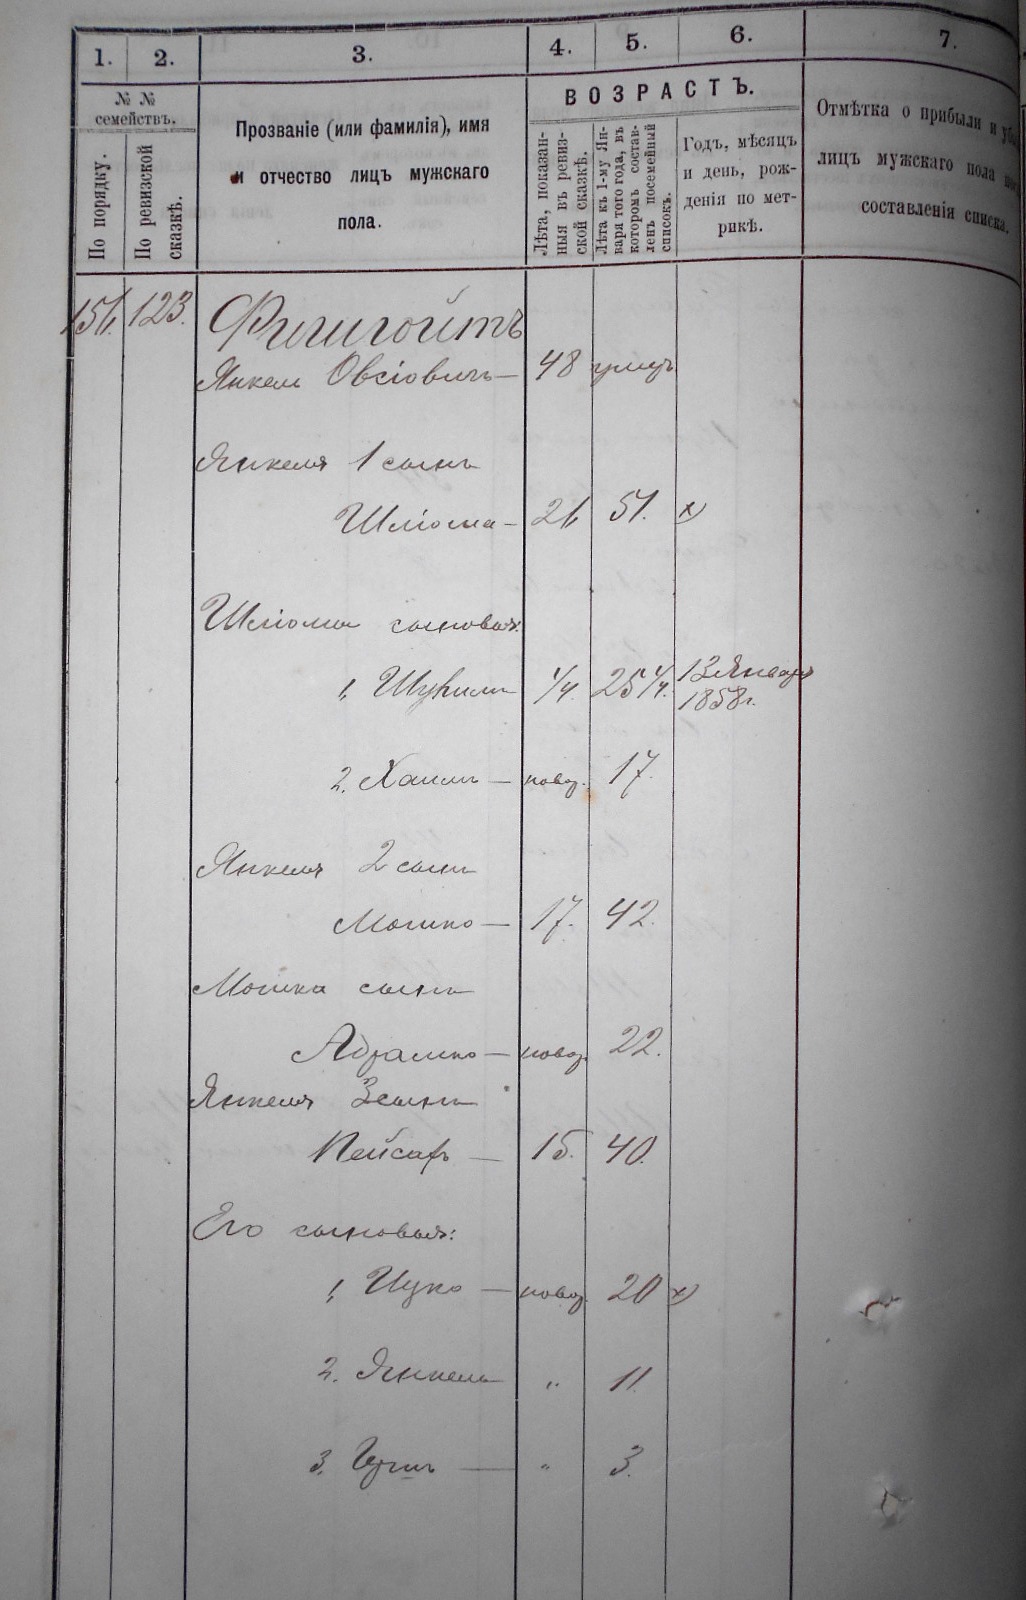 1.
2.
3.
4.
5.
6.
7.
№ №
семействъ.
По порядку.
По ревизской
сказкѣ.
Прозваніе (или фамилія), имя
и отчество лицъ мужскаго
пола.
ВОЗРАСТЪ.
Лѣта, показан-
ныя въ ревиз-
ской сказкѣ.
Лѣта къ 1-му Ян-
варя того года, въ
которомъ состав-
ленъ посемейный
списокъ.
Годъ, мѣсяцъ
и день, рож-
денія по мет-
рикѣ.
Отмѣтка о прибыли и
лицъ мужскаго пола
составленія списка.
123.
Янкель Овсіовичъ — 48
Янкеля 1 сынъ
Шліома — 51. х)
Шліомы сыновья:
1, 1/4. 25 1/4. 13 Января
1858 г.
2. Хаимъ — новор. 17.
Янкеля 2 сынъ
Мошко — 17. 42.
Мошка сынъ
Абрамко — новор. 22.
Янкеля 3 сынъ
Пейсахъ — 15. 40.
Его сыновья:
1, Ицко — новор. 20 х)
2. Янкель " 11.
3, — " 3.